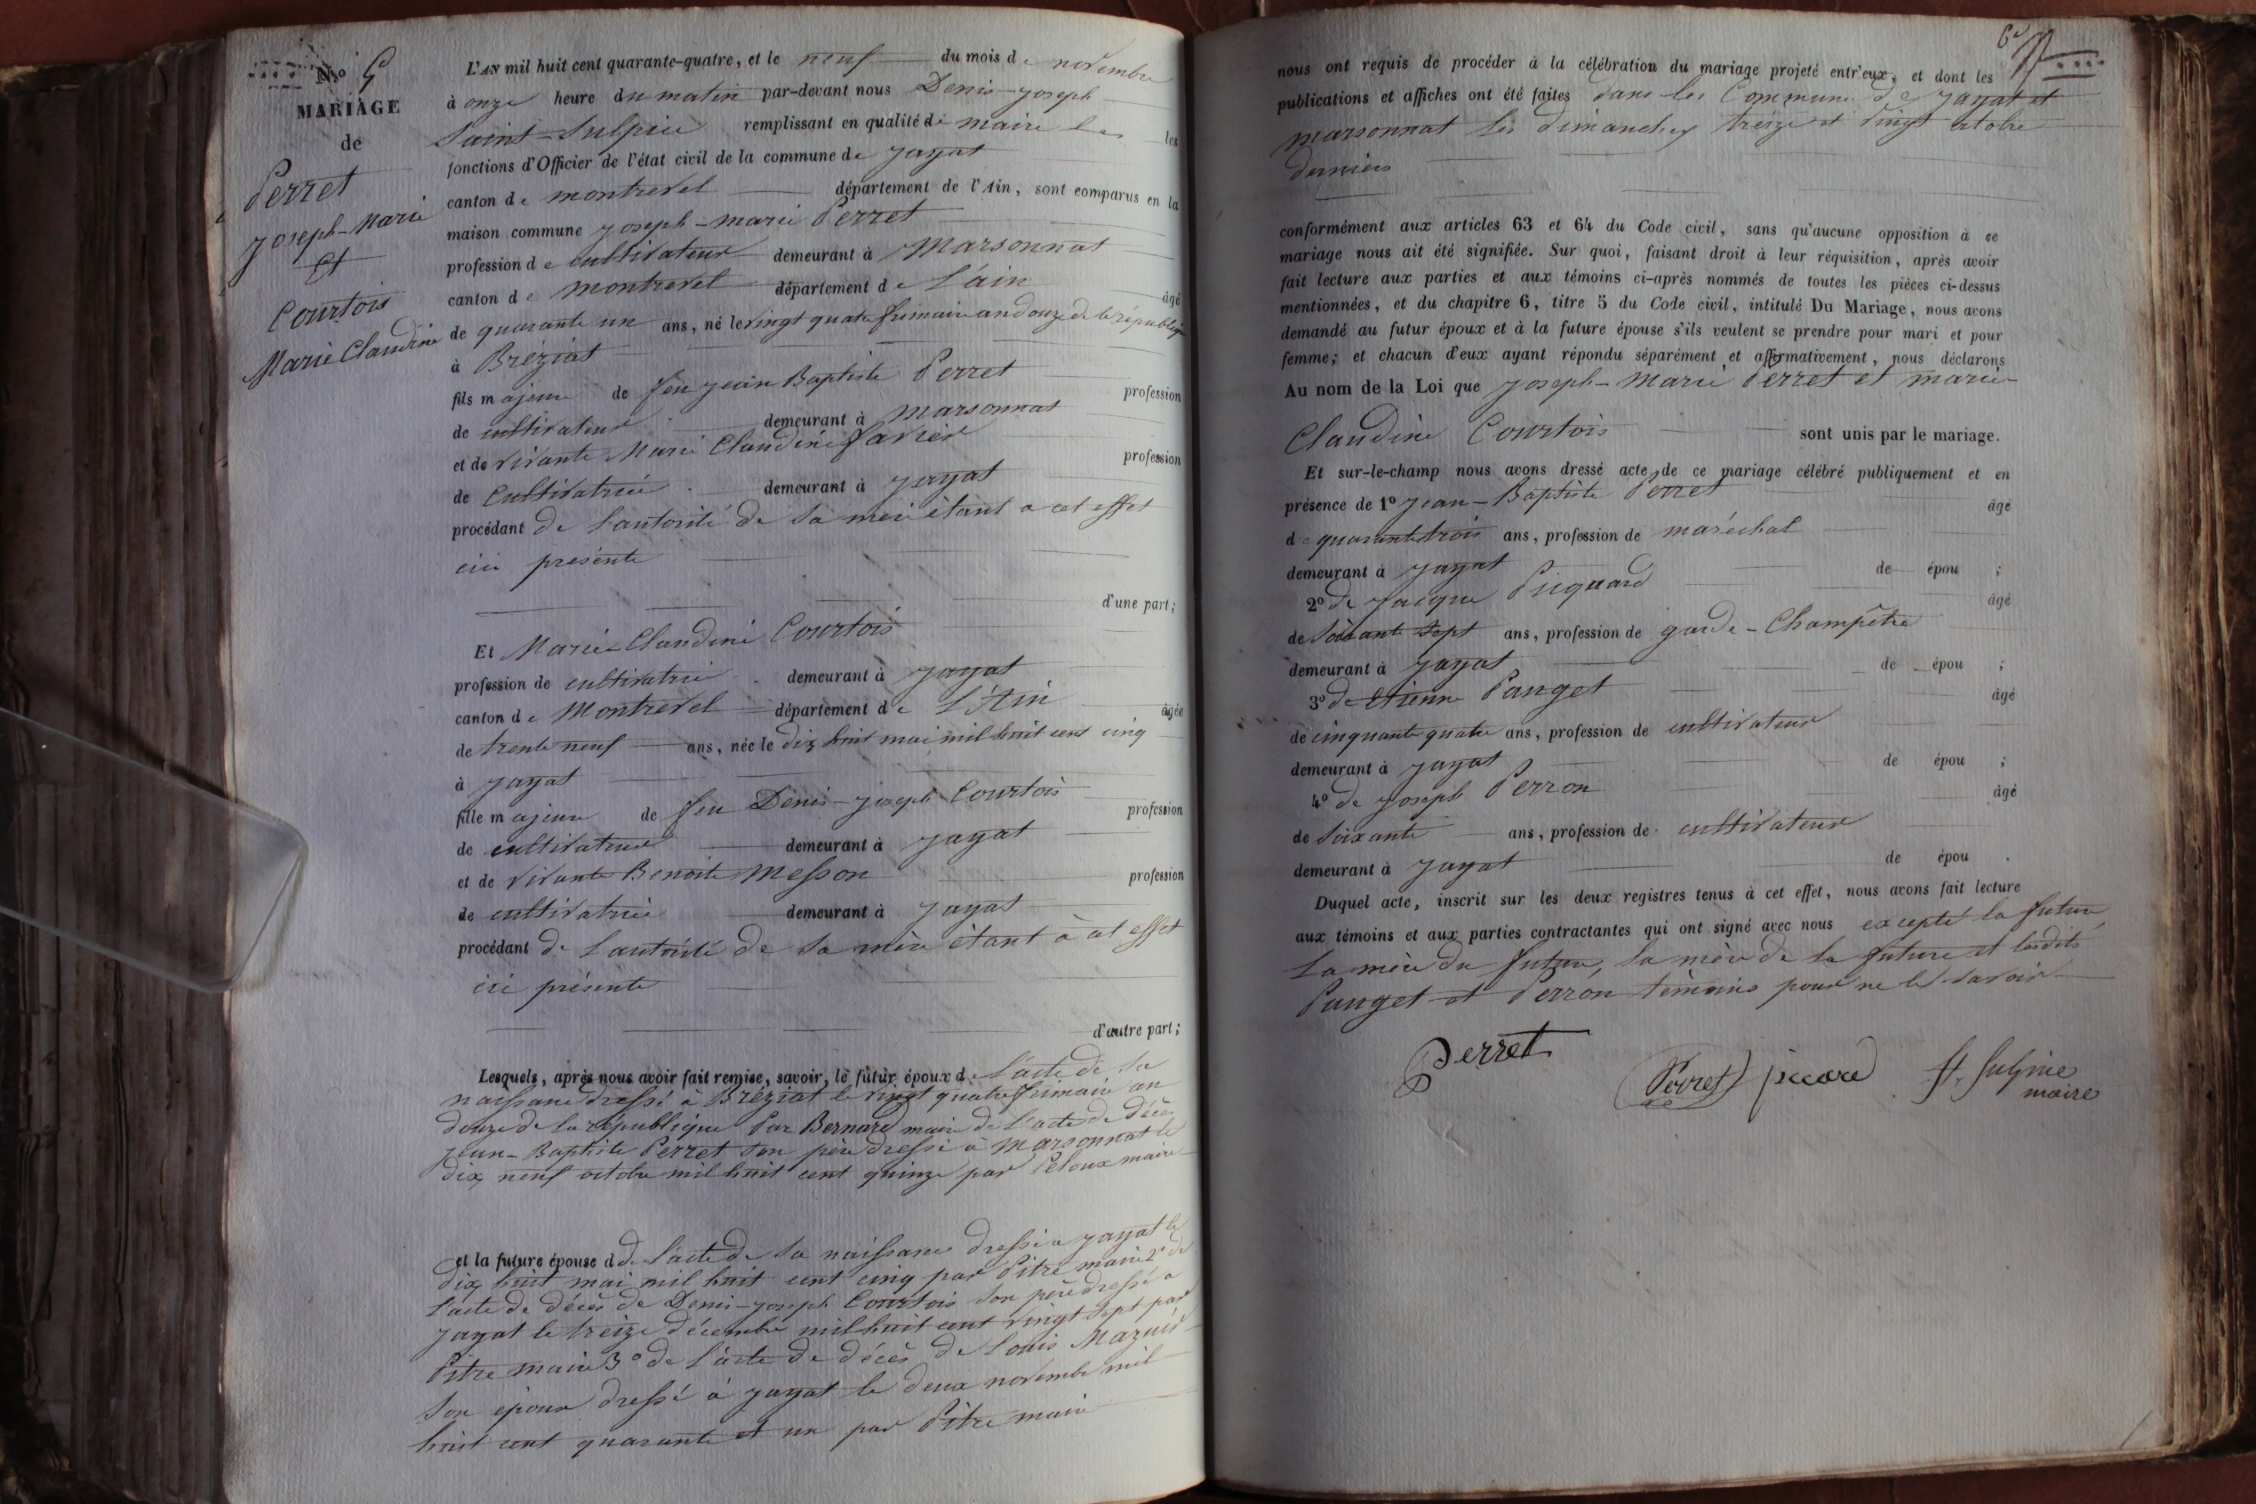 N.º 5
MARIAGE
de
Perret
Joseph-Marie
Et
Courtois
Marie Claudine
L'AN mil huit cent quarante-quatre, et le neuf du mois de novembre
à onze heure du matin par-devant nous Denis-Joseph
Saint-Sulpice remplissant en qualité de maire les
fonctions d'Officier de l'état civil de la commune de Jayat
canton de montrevel département de l'Ain, sont comparus en la
maison commune Joseph-marie Perret
profession de cultivateur demeurant à Marsonnat
canton de montrevel département de L'ain âgé
de quarante un ans, né le vingt quatre frimaire an douze de la république
à Bréziat
fils majeur de feu jean Baptiste Perret profession
de cultivateur demeurant à marsonnat
et de vivante Marie Claudine favier profession
de Cultivatrice demeurant à jayat
procédant de l'autorité de sa mere étant a cet effet
ici présente
d'une part;
Et Marie Claudine Courtois
profession de cultivatrice demeurant à jayat
canton de Montrevel département de L'Ain âgée
de trente neuf ans, née le dix huit mai mil huit cent cinq
à jayat
fille majeure de feu Denis-joseph Courtois profession
de cultivateur demeurant à jayat
et de vivante Benoite Messon profession
de cultivatrice demeurant à jayat
procédant de l'autorité de sa mère étant à cet effet
ici présente
d'autre part;
Lesquels, après nous avoir fait remise, savoir, le futur époux de l'acte de sa
naissance dressé à Bréziat le vingt quatre frimaire an
douze de la république Par Bernard maire de l'acte de décès
jean-Baptiste Perret son père dressé à Marsonnat le
dix neuf octobre mil huit cent quinze par Peloux maire
et la future épouse d de l'acte de sa naissance dressé a jayat le
dix huit mai mil huit cent cinq par Pitre maire 2º de
l'acte de décès de Denis-joseph Courtois son père dressé a
jayat le treize décembre mil huit cent vingt sept par
Pitre maire 3º de l'acte de décès de Louis Mazuir
son époux dressé à jayat le deux novembre mil
huit cent quarante et un par Pitre maire
6e
nous ont requis de procéder à la célébration du mariage projeté entr'eux, et dont les
publications et affiches ont été faites dans les Communes de Jayat et
marsonnat les dimanches treize et vingt octobre
derniers
conformément aux articles 63 et 64 du Code civil, sans qu'aucune opposition à ce
mariage nous ait été signifiée. Sur quoi, faisant droit à leur réquisition, après avoir
fait lecture aux parties et aux témoins ci-après nommés de toutes les pièces ci-dessus
mentionnées, et du chapitre 6, titre 5 du Code civil, intitulé Du Mariage, nous avons
demandé au futur époux et à la future épouse s'ils veulent se prendre pour mari et pour
femme; et chacun d'eux ayant répondu séparément et affirmativement, nous déclarons
Au nom de la Loi que Joseph-Marie Perret et marie
Claudine Courtois sont unis par le mariage.
Et sur-le-champ nous avons dressé acte de ce mariage célébré publiquement et en
présence de 1º jean-Baptiste Perret âgé
de quarante trois ans, profession de maréchal
demeurant à jayat de épou ;
2º de jacque Picquard âgé
de soixante sept ans, profession de garde-Champêtre
demeurant à jayat de épou ;
3º de Etienne Panget âgé
de cinquante quatre ans, profession de cultivateur
demeurant à jayat de épou ;
4º de joseph Perron âgé
de soixante ans, profession de cultivateur
demeurant à jayat de épou .
Duquel acte, inscrit sur les deux registres tenus à cet effet, nous avons fait lecture
aux témoins et aux parties contractantes qui ont signé avec nous excepté la future,
la mère du futur, la mère de la future et lesdits
Panget et Perron témoins pour ne le savoir
Perret
Perret piccard St Sulpice
maire